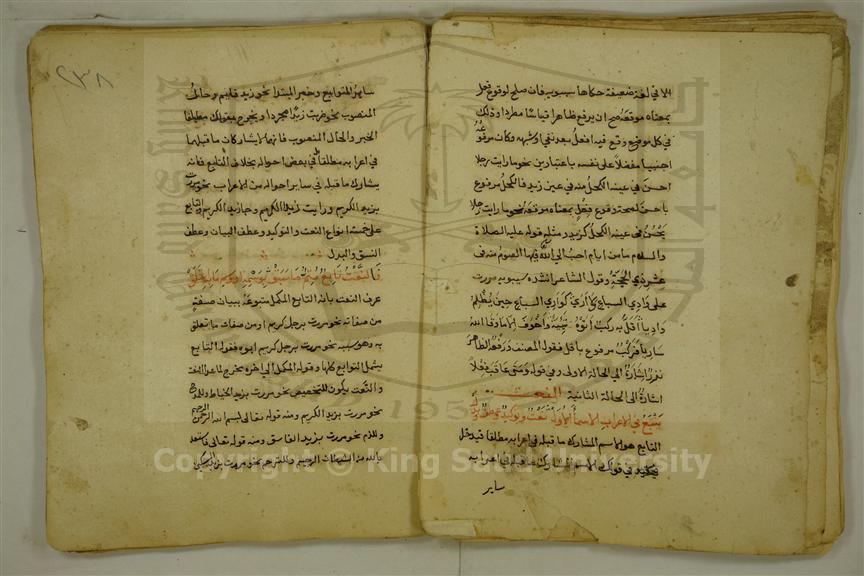 الا في لغة ضعيفة حكاها سيبويه فان صلح لوقوع فعل
بمعناه موقعه صح ان يرفع ظاهرا قياسا مطردا وذلك
في كل موضع وقع فيه افعل بعد نفي او شبهه وكان مرفوعه
اجنبيا مفضلا على نفسه باعتبارين نحو ما رايت رجلا
احسن في عينه الكحل منه في عين زيد فالكحل مرفوع
باحسن لصحة وقوع فعل بمعناه موقعه نحو ما رايت رجلا
يحسن في عينه الكحل كزيد ومثله قوله عليه الصلاة
والسلام ما من ايام احب الى الله فيها الصوم منه في
عشر ذي الحجة وقول الشاعر انشده سيبويه مررت
على وادي السباع ولا ارى كوادي السباع حين يظلم
واديا اقل به ركب اتوه تئية واخوف الا ما وقى الله
ساريا فركب مرفوع باقل فقول المصنف ورفعه الظاهر
نزر اشارة الى الحالة الاولى وفي قوله ومتى عاقب فعلا
اشارة الى الحالة الثانية النعت
يتبع في الاعراب الاسماء الاول نعت وتوكيد وعطف وبدل
التابع هو الاسم المشارك ما قبله في اعرابه مطلقا فيدخل
في قولك الاسم المشارك ما قبله في اعرابه
ساير
٢٣٨
ساير التوابع وخبر المبتدا نحو زيد قايم وحال
المنصوب نحو ضربت زيدا مجردا ويخرج بقولك مطلقا
الخبر والحال المنصوب فانهما لا يشاركان ما قبلهما
في اعرابه مطلقا بل في بعض احواله بخلاف التابع فانه
يشارك ما قبله في ساير احواله من الاعراب نحو مررت
بزيد الكريم ورايت زيدا الكريم وجا زيد الكريم والتابع
على خمسة انواع النعت والتوكيد وعطف البيان وعطف
النسق والبدل
فالنعت تابع متم ما سبق بوسمه او وسم ما به اعتلق
عرف النعت بانه التابع المكمل متبوعه ببيان صفة
من صفاته نحو مررت برجل كريم او من صفات ما تعلق
به وهو سببيه نحو مررت برجل كريم ابوه فقوله التابع
يشمل التوابع كلها وقوله المكمل الى اخره مخرج لما عدا النعت
والنعت يكون للتخصيص نحو مررت بزيد الخياط وللمدح
نحو مررت بزيد الكريم ومنه قوله تعالى بسم الله الرحمن الرحيم
وللذم نحو مررت بزيد الفاسق ومنه قوله تعالى فاستعذ
بالله من الشيطان الرجيم وللترحم نحو مررت بزيد المسكين
Copyright © King Saud University
1957